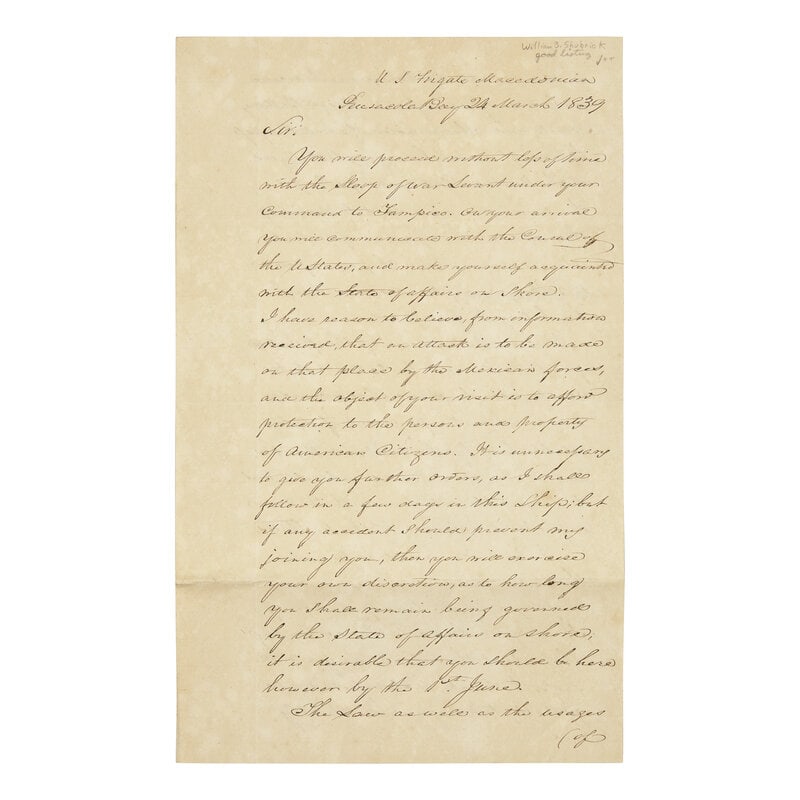 William B. Shubrick
good listing
U S Frigate Macedonian
Pensacola Bay 24 March 1839
Sir:
You will proceed without loss of time
with the Sloop of war Levant under your
Command to Tampico. On your arrival
you will communicate with the Consul of
the U States, and make yourself acquainted
with the State of affairs on Shore.
I have reason to believe, from information
received, that an attack is to be made
on that place by the Mexican forces,
and the object of your visit is to afford
protection to the persons and property
of American Citizens. It is unnecessary
to give you further orders, as I shall
follow in a few days in this Ship; but
if any accident Should prevent my
joining you, then you will exercise
your own discretion, as to how long
you Shall remain being governed
by the State of affairs on shore,
it is desirable that you Should be here
however by the 1st June.
The Law as well as the usages
(of